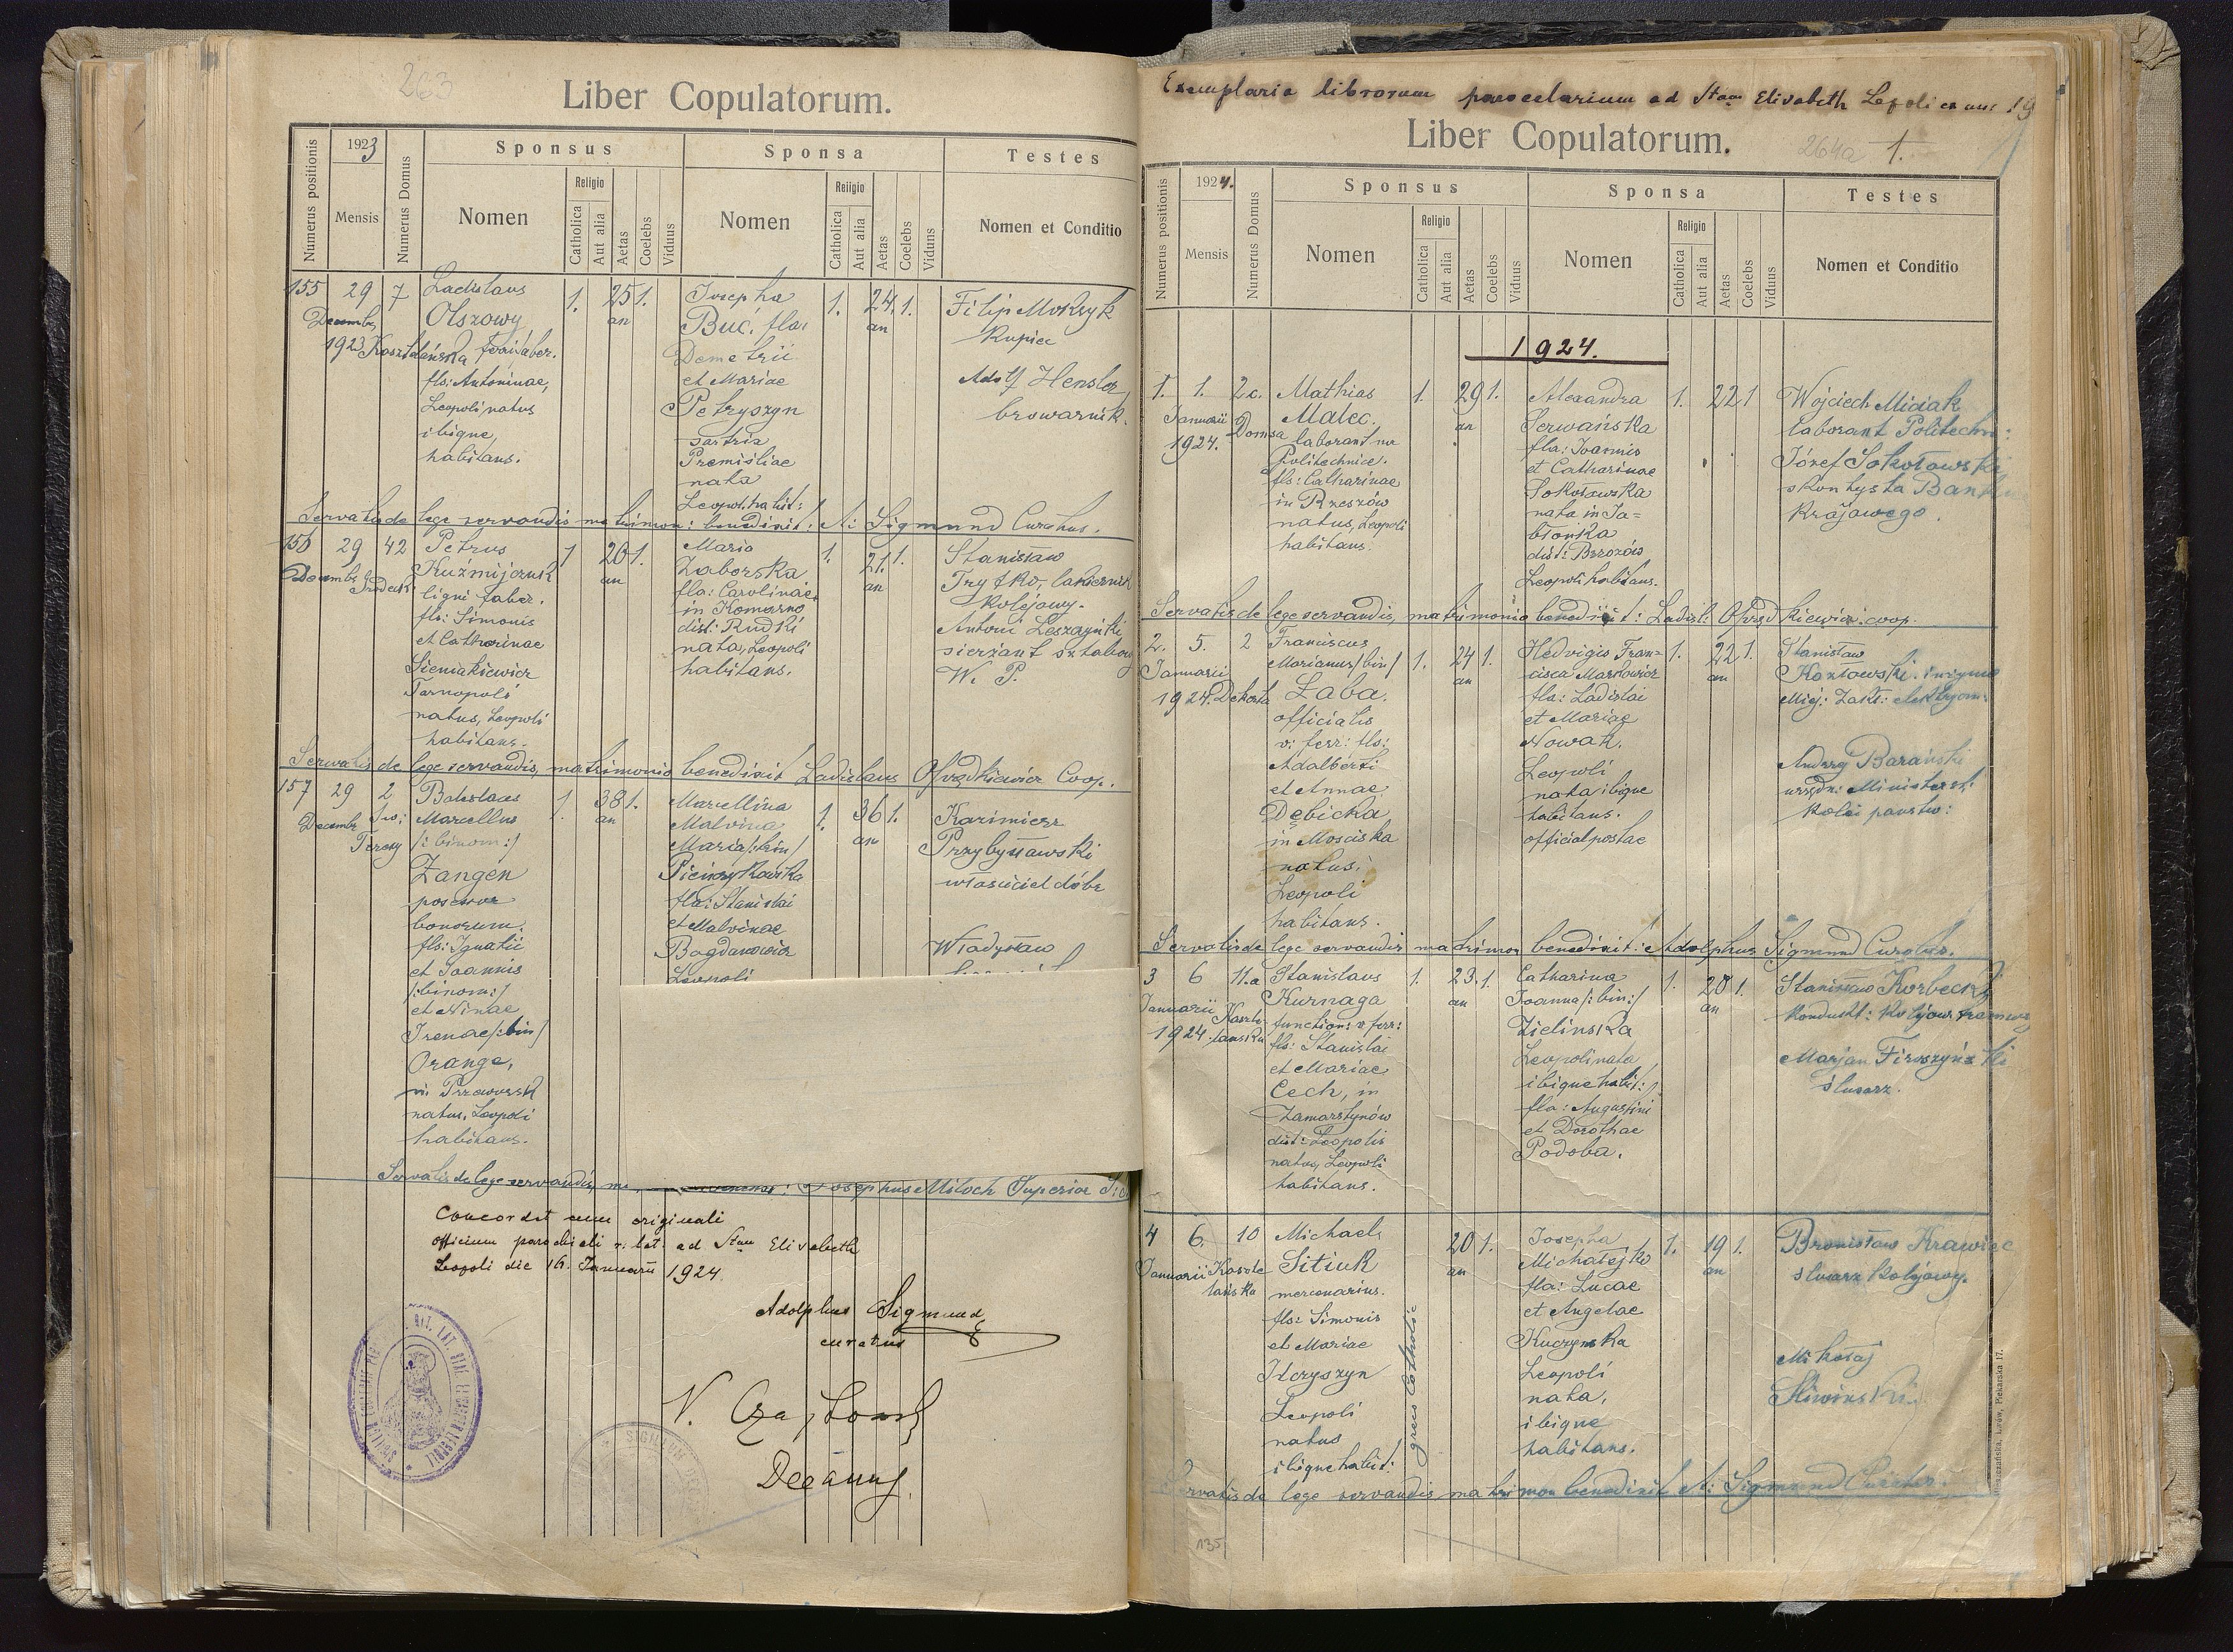 263
Liber Copulatorum.
Numerus positionis
1923
Mensis
Numerus Domus
Sponsus
Nomen
Religio
Catholica
Aut alia
Aetas
Coelebs
Viduus
Sponsa
Nomen
Religio
Catholica
Aut alia
Aetas
Coelebs
Viduus
Testes
Nomen et Conditio
155 29 7 Ladislaus 1. 25 1. Josepha 1. 24. 1. Filip Mokrzyk
Decembr. Olszowy an Buć, fla: an Kupiec
1923 Kasztelańska ferri faber. Demetrii
fls: Antoninae, et Mariae Adolf Hensler
Leopoli natus Petryszyn browarnik.
ibique, sartrix
habitans. Premisliae
nata
Leopol. habit:
Servatis de lege servandis matrimon: benedixit: A: Sigmund Curatus.
156 29 42 Petrus 1 26 1. Maria 1. 21. 1. Stanisław
Decembr. Gródeck Kuźmijczuk an Zaborska an Tryfko, lakiernik
ligni faber. fla: Carolinae, kolejowy.
fls: Simonis in Komarno Antoni Leszczyński
et Catharinae dist: Rudki sierżant sztabowy
Sieniakiewicz nata, Leopoli W. P.
Tarnopoli habitans.
natus, Leopoli
habitans.
Servatis de lege servandis, matrimonio benedixit Ladislaus Coop.
157 29 2 Boleslaus 1. 38 1. Marcellina 1. 36 1. Kazimierz
Decembr. Św: Marcellus an Malvina an Przybysławski
Teresy /: binom:/ Maria /: bin/ właściciel dóbr
Zangen Pieńczykowska
possessor fla: Stanislai
bonorum. et Malvinae
fls: Ignatii Bogdanowicz Władysław
et Joannis Leopoli
/:binom:/
et Ninae
Irenae /:bin/
Orange,
in Przeworsk
natus, Leopoli
habitans.
Servatis de lege servandis, Josephus Miloch Superior
Concordat cum originali
officium parochiali r. lat. ad Stam Elisabeth
Leopoli die 16. Januarii 1924.
Adolphus Sigmund
curatus
Decanus.
SIGILLUM
Exemplaria librorum parochialium ad Stam Elisabeth Leopoli ex ann 19
Liber Copulatorum.
264a 1.
Numerus positionis
1924.
Mensis
Numerus Domus
Sponsus
Nomen
Religio
Catholica
Aut alia
Aetas
Coelebs
Viduus
Sponsa
Nomen
Religio
Catholica
Aut alia
Aetas
Coelebs
Viduus
Testes
Nomen et Conditio
1924.
1. 1. 2c. Mathias 1. 29 1. Alexandra 1. 22 1 Wojciech Misiak
Januarii Domsa Malec. an Serwańska laborant Politechn:
1924. laborant na fla: Joannis Józef Sokołowski
Politechnice. et Catharinae skontysta Banku
fls: Catharinae Sokołowska Krajowego.
in Rzeszów nata in Ja=
natus, Leopoli błonka
habitans. dist: Brzozów
Leopoli habitans.
Servatis de lege servandis, matrimonio benedixit: Ladisl: coop.
2. 5. 2 Franciscus 1. 24 1. Hedvigis Fran= 1. 22 1. Stanisław
Januarii Marianus /bin/ an cisca Markowicz an Kozłowski inżynier
1924. Dekerta Łaba. fla: Ladislai Miej: Zakł: elektrycz:
officialis et Mariae
v: ferr: fls: Nowak.
Adalberti Leopoli Andrzej Barański
et Annae nata ibique urzędn: Ministerst:
Dębicka habitans. kolei państw:
in Mosciska official postae
natus.
Leopoli
habitans.
Servatis de lege servandis matrimon benedixit: Adolphus Sigmund Curatus.
3 6 11.a Stanislaus 1. 23. 1. Catharina 1. 20 1. Stanisław Korbecki
Januarii Kaszte- Kurnaga an Joanna /: bin:/ an kondukt: kolejow.
1924. lańska function: v ferr: Zielinska
fls: Stanislai Leopoli nata Marjan Firoszyński
et Mariae ibique habit: ślusarz.
Cech, in fla: Augustini
Zamarstynów et Dorothae
dist: Leopolis Podoba.
natus, Leopoli
habitans.
4 6. 10 Michael 20 1. Josepha 1. 19 1. Bronisław Krawiec
Januarii Kaszte Sitiuk an Michałejko an ślusarz kolejowy.
lańska mercenarius. fla: Lucae
fls: Simonis et Angelae
et Mariae Kuczynska Mikołaj
Hryszyn Leopoli Śliwinski
Leopoli nata,
natus ibique
ibique habit: habitans.
greco Catholic
Servatis de lege servandis matrimon benedixit A: Sigmund Curatus.
135
Lwów, Piekarska 17.